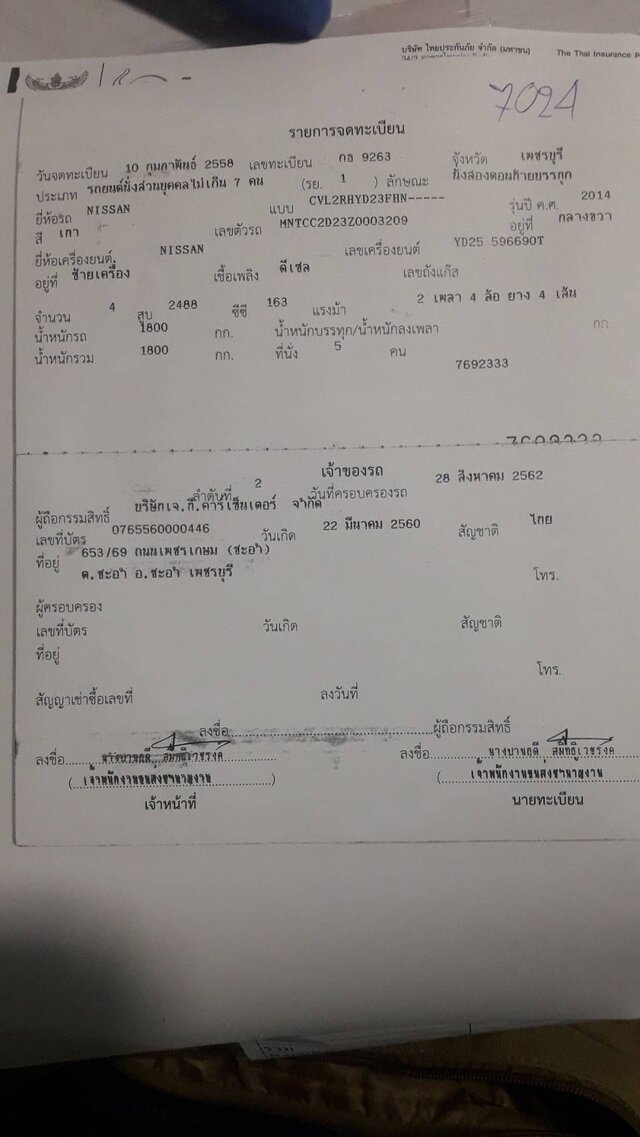 บริษัท ไทยประกันภัย จำกัด (มหาชน) The Thai Insurance P
7024
รายการจดทะเบียน
วันจดทะเบียน 10 กุมภาพันธ์ 2558 เลขทะเบียน กธ 9263 จังหวัด เพชรบุรี
ประเภท รถยนต์นั่งส่วนบุคคลไม่เกิน 7 คน (รย. 1 ) ลักษณะ นั่งสองตอนท้ายบรรทุก
ยี่ห้อรถ NISSAN แบบ CVL2RHYD23FHN----- รุ่นปี ค.ศ. 2014
สี เทา เลขตัวรถ MNTCC2D23Z0003209 อยู่ที่ กลางขวา
ยี่ห้อเครื่องยนต์ NISSAN เลขเครื่องยนต์ YD25 596690T
อยู่ที่ ซ้ายเครื่อง เชื้อเพลิง ดีเซล เลขถังแก๊ส
จำนวน 4 สูบ 2488 ซีซี 163 แรงม้า 2 เพลา 4 ล้อ ยาง 4 เส้น
น้ำหนักรถ 1800 กก. น้ำหนักบรรทุก/น้ำหนักลงเพลา กก.
น้ำหนักรวม 1800 กก. ที่นั่ง 5 คน
7692333
เจ้าของรถ
ลำดับที่ 2 วันที่ครอบครองรถ 28 สิงหาคม 2562
ผู้ถือกรรมสิทธิ์ บริษัทเจ.ที.คาร์เซ็นเตอร์ จำกัด
เลขที่บัตร 0765560000446 วันเกิด 22 มีนาคม 2560 สัญชาติ ไทย
ที่อยู่ 653/69 ถนนเพชรเกษม (ชะอำ)
ต.ชะอำ อ.ชะอำ เพชรบุรี โทร.
ผู้ครอบครอง
เลขที่บัตร วันเกิด สัญชาติ
ที่อยู่
โทร.
สัญญาเช่าซื้อเลขที่ ลงวันที่
ลงชื่อ ผู้ถือกรรมสิทธิ์
ลงชื่อ ลงชื่อ
(เจ้าพนักงานขนส่งชำนาญงาน) (เจ้าพนักงานขนส่งชำนาญงาน
เจ้าหน้าที่ นายทะเบียน